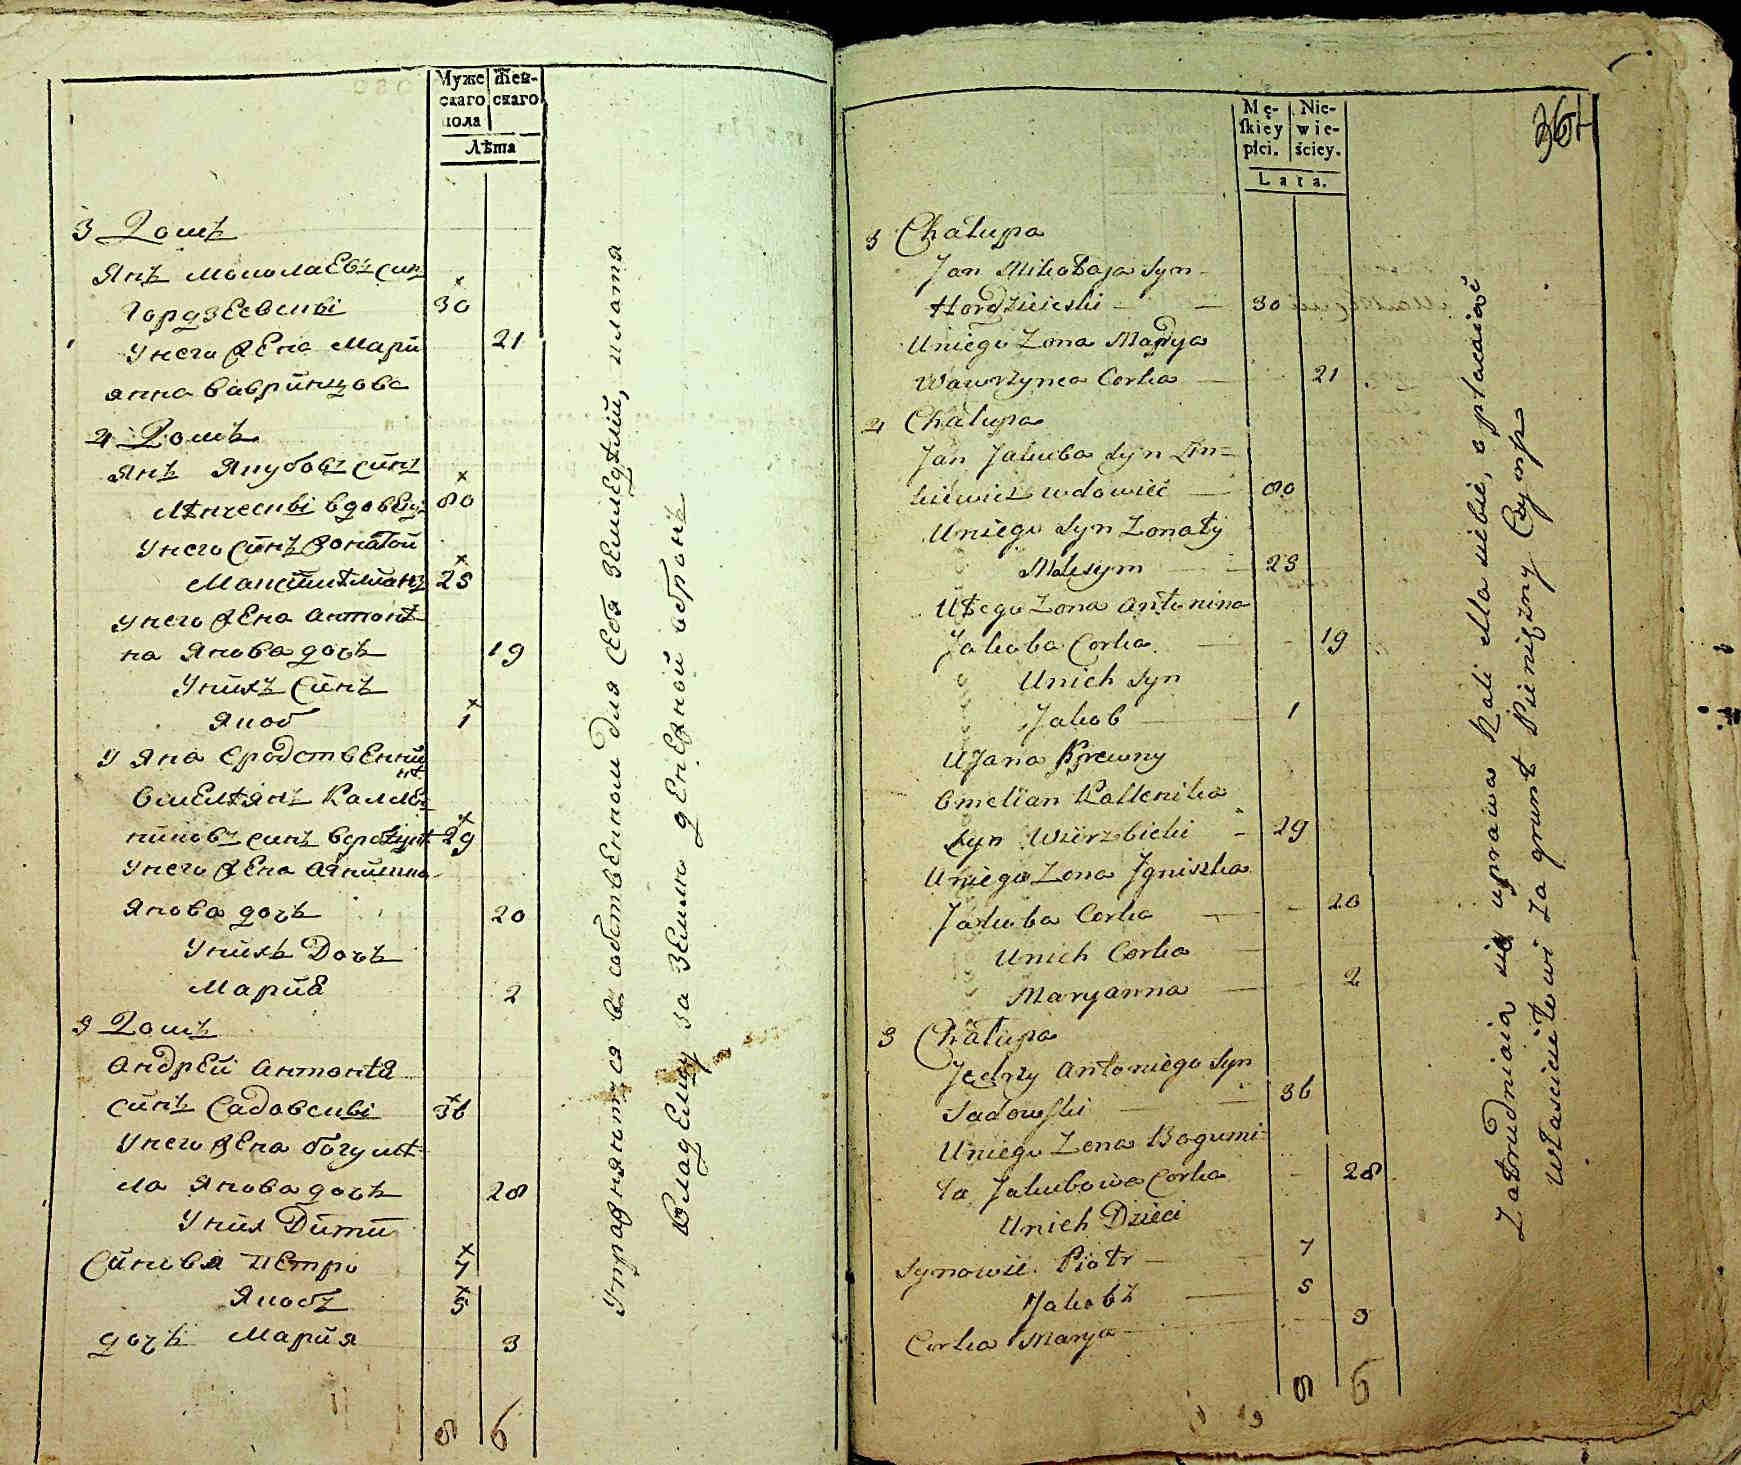 Муже
скаго
пола
Жен-
скаго
Лѣта
3 Домъ
Янъ Миколаевъ синъ
Гордзеевскві 30
Унего жена Мари
анна Вавринцова 21
4 Домъ
Янъ Якубовъ синъ
вдовец 80
Унего синъ жонатой
25
унего жена Антоні-
на Янова дочь 19
Унихъ синъ
Якоб 1
У Яна сродственни
Омелянъ Калле-
никовъ синъ 29
Унего жена
Янова дочь 20
Унихъ Дочь
Марія 2
5 Домъ
Андрей Антонія
синъ Садовскві 36
Унего жена богумі-
ла Янова дочь 28
Уних Дити
Синовя Петри 7
Якобъ 5
дочь Марія 3
8 6
Упражняются в собственном для себя земледѣлій, платя
Владелцу за землю денежной оброкъ
Mę-
skiey
płci.
Nie-
wie-
ściey.
Lata.
361
3 Chałupa
Jan Mikołaja Syn
Hordziejeski 30
Uniego Zona Marya
Wawrzynca Corka 21
4 Chałupa
Jan Jakuba Syn
wdowieć 80
Uniego Syn Zonaty
Maksym 25
Utego Zona Antonina
Jakuba Corka 19
Unich Syn
Jakob 1
U Jana Krewny
Omelian Kallenika
Syn Wierzbicki 29
Uniego Zona Jgniszka
Jakuba Corka 20
Unich Corka
Maryanna 2
5 Chałupa
Jędrzy Antoniego Syn
Sadowski 36
Uniego Zona Bogumi-
ła Jakubowa Corka 28
Unich Dzieci
Synowie Piotr 7
Jakobź 5
Corka Marya 3
8 6
Zatrudniaią się uprawa Roli dla siebie, opłacaiąć
Włascicielowi za grunt Pieniężny Czynsz